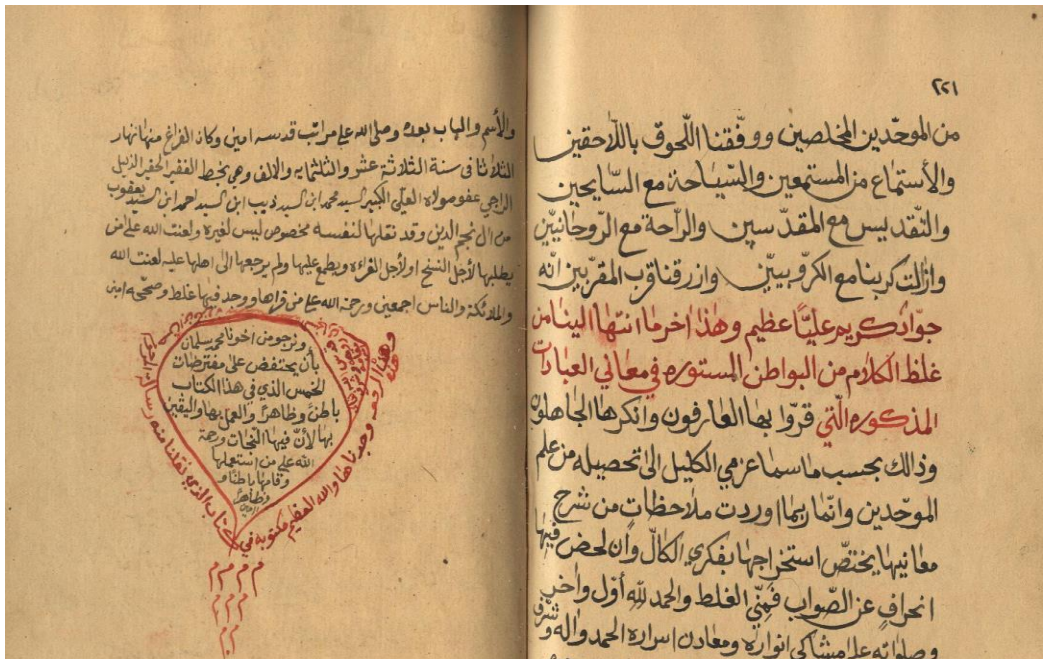 ٢٢١
من الموحّدين المخلصين ووفّقنا اللّحوق باللّاحقين
والأستماع من المستمعين والسّياحة مع السّايحين
والتّقديس مع المقدّسين والراحة مع الرّوحانيّين
وازالت كربنا مع الكرّوبيّين وازرقنا قرب المقرّبين انّه
جوّاد كريم عليّاً عظيم وهذا اخر ما انتها الينا من
غلظ الكلام من البواطن المستوره في معاني العبادات
المذكوره الّتي قرّوا بها العارفون وانكرها الجاهلون
وذالك بحسب ما سما عزمي الكليل الى تحصيله من علم
الموحّدين وانّما ربما اوردت ملاحظات من شرح
معانيها يختصّ استخراجها بفكري الكالّ وأن لحض فيها
انحراف عن الصّواب فمنّي الغلط والحمد للّه أوّل واخر
وصلواته على مشاكي انواره ومعادن اسراره الحمد واله وشرّف
والأسم والباب بعده وصلى الله على مراتب قدسه امين وكان الفراغ منها نهار
الثلاثا في سنة الثلاثة عشر والثلثمايه والالف وهي بخط الفقير الحقير الذليل
الراجي عفو مولاه العلي الكبير السيد محمد ابن السيد ديب ابن السيد احمد ابن السيد يعقوب
من ال نجم الدين وقد نقلها لنفسه مخصوص ليس لغيره ولعنت الله على من
يطلبها لأجل النسخ او لأجل القراءه ويطمع عليها ولم يرجعها الى اهلها عليه لعنت الله
والملائكة والناس اجمعين ورحمة الله على من قراها ووجد فيها غلط وصحّحه امين
ونرجو من اخونا محمد سلمان
بأن يحتفض على مفترضات
الخمس الذي في هذا الكتاب
باطنً وظاهرً والعمل بها واليقين
بها لأنّ فيها النجات ورحمة
الله على من استعملها
وقام بها باطناً و
وظاهرً
امين
وجدناها والله العظيم مكتوبه في
كتاب الذي نقلنا منه
م م م م
م م م
م م